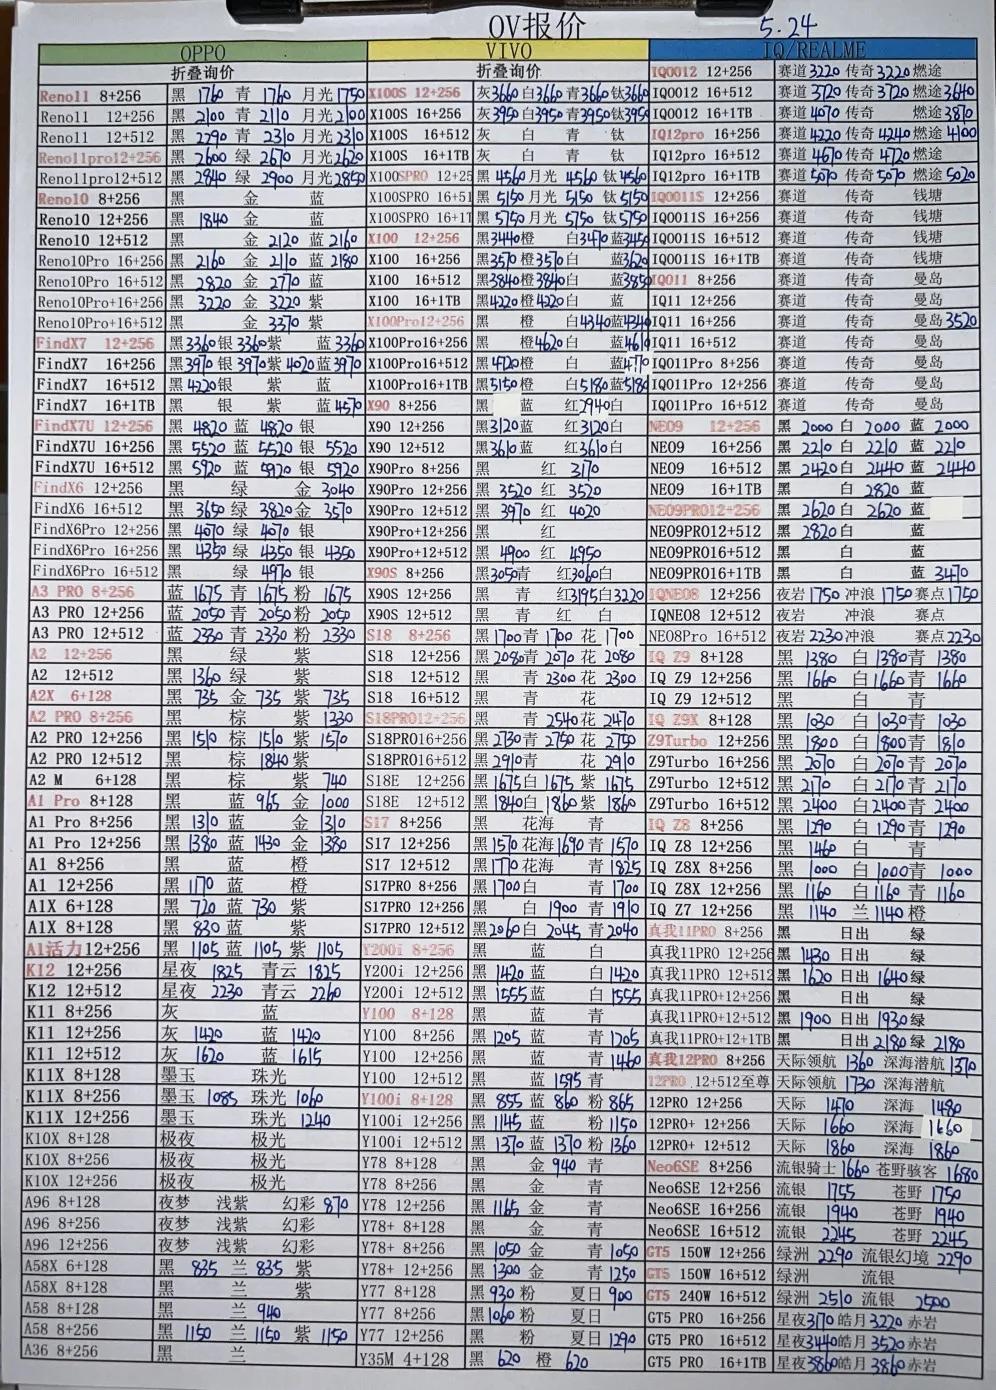 OV报价 5.24
OPPO VIVO IQ/REALME
折叠询价 折叠询价 IQOO12 12+256 赛道3220 传奇3220 燃途
Reno11 8+256 黑 1760 青 1760 月光 1750 X100S 12+256 灰3660 白3660 青3660 钛3660 IQOO12 16+512 赛道3720 传奇3720 燃途3640
Reno11 12+256 黑 2100 青 2110 月光 2100 X100S 16+256 灰3950 白3950 青3950 钛3950 IQOO12 16+1TB 赛道4070 传奇 燃途3870
Reno11 12+512 黑 2290 青 2310 月光 2310 X100S 16+512 灰 白 青 钛 IQ12pro 16+256 赛道4220 传奇4240 燃途4100
Reno11pro12+256 黑 2600 绿 2670 月光 2620 X100S 16+1TB 灰 白 青 钛 IQ12pro 16+512 赛道4670 传奇4720 燃途
Reno11pro12+512 黑 2840 绿 2900 月光 2850 X100SPRO 12+25 黑 4560 月光 4560 钛 4560 IQ12pro 16+1TB 赛道5070 传奇5070 燃途5020
Reno10 8+256 黑 金 蓝 X100SPRO 16+51 黑 5150 月光 5150 钛 5150 IQOO11S 12+256 赛道 传奇 钱塘
Reno10 12+256 黑 1840 金 蓝 X100SPRO 16+1T 黑 5750 月光 5750 钛 5750 IQOO11S 16+256 赛道 传奇 钱塘
Reno10 12+512 黑 金 2120 蓝 2160 X100 12+256 黑3440 橙 白3470 蓝3450 IQOO11S 16+512 赛道 传奇 钱塘
Reno10Pro 16+256 黑 2160 金 2110 蓝 2180 X100 16+256 黑3570 橙3570 白 蓝3620 IQOO11S 16+1TB 赛道 传奇 钱塘
Reno10Pro 16+512 黑 2820 金 2770 蓝 X100 16+512 黑3840 橙3840 白 蓝3850 IQO11 8+256 赛道 传奇 曼岛
Reno10Pro+16+256 黑 3220 金 3220 紫 X100 16+1TB 黑4220 橙4220 白 蓝 IQ11 12+256 赛道 传奇 曼岛
Reno10Pro+16+512 黑 金 3370 紫 X100Pro12+256 黑 橙 白4340 蓝4340 IQ11 16+256 赛道 传奇 曼岛3520
FindX7 12+256 黑3360 银3360 紫 蓝3360 X100Pro16+256 黑 橙4620 白 蓝4610 IQ11 16+512 赛道 传奇 曼岛
FindX7 16+256 黑3970 银3970 紫4020 蓝3970 X100Pro16+512 黑4720 橙 白 蓝4770 IQO11Pro 8+256 赛道 传奇 曼岛
FindX7 16+512 黑4220 银 紫 蓝 X100Pro16+1TB 黑5150 橙 白5180 蓝5180 IQO11Pro 12+256 赛道 传奇 曼岛
FindX7 16+1TB 黑 银 紫 蓝4570 X90 8+256 黑 蓝 红2940 白 IQO11Pro 16+512 赛道 传奇 曼岛
FindX7U 12+256 黑 4820 蓝 4820 银 X90 12+256 黑3120 蓝 红3120 白 NEO9 12+256 黑 2000 白 2000 蓝 2000
FindX7U 16+256 黑 5520 蓝 5520 银 5520 X90 12+512 黑3610 蓝 红3610 白 NEO9 16+256 黑 2210 白 2210 蓝 2210
FindX7U 16+512 黑 5920 蓝 5920 银 5920 X90Pro 8+256 黑 红 3170 NEO9 16+512 黑 2420 白 2440 蓝 2440
FindX6 12+256 黑 绿 金 3040 X90Pro 12+256 黑 3520 红 3520 NEO9 16+1TB 黑 白 2820 蓝
FindX6 16+512 黑 3650 绿 3820 金 3570 X90Pro 12+512 黑 3970 红 4020 NEO9PRO12+256 黑 2620 白 2620 蓝
FindX6Pro 12+256 黑 4070 绿 4070 银 X90Pro+12+256 黑 红 NEO9PRO12+512 黑 2820 白 蓝
FindX6Pro 16+256 黑 4350 绿 4350 银 4350 X90Pro+12+512 黑 4900 红 4950 NEO9PRO16+512 黑 白 蓝
FindX6Pro 16+512 黑 绿 4970 银 X90S 8+256 黑3050 青 红3060 白 NEO9PRO16+1TB 黑 白 蓝 3470
A3 PRO 8+256 蓝 1675 青 1675 粉 1675 X90S 12+256 黑 青 红3195 白3220 IQNEO8 12+256 夜岩 1750 冲浪 1750 赛点 1750
A3 PRO 12+256 蓝 2050 青 2050 粉 2050 X90S 12+512 黑 青 红 白 IQNEO8 12+512 夜岩 冲浪 赛点
A3 PRO 12+512 蓝 2330 青 2330 粉 2330 S18 8+256 黑 1700 青 1700 花 1700 NEO8Pro 16+512 夜岩 2230 冲浪 赛点 2230
A2 12+256 黑 绿 紫 S18 12+256 黑 2080 青 2070 花 2080 IQ Z9 8+128 黑 1380 白 1380 青 1380
A2 12+512 黑 1360 绿 紫 S18 12+512 黑 青 2300 花 2300 IQ Z9 12+256 黑 1660 白 1660 青 1660
A2X 6+128 黑 735 金 735 紫 735 S18 16+512 黑 青 花 IQ Z9 12+512 黑 白 青
A2 PRO 8+256 黑 棕 紫 1330 S18PRO12+256 黑 青 2540 花 2470 IQ Z9X 8+128 黑 1030 白 1030 青 1030
A2 PRO 12+256 黑 1510 棕 1510 紫 1570 S18PRO16+256 黑 2730 青 2750 花 2750 Z9Turbo 12+256 黑 1800 白 1800 青 1810
A2 PRO 12+512 黑 棕 1840 紫 S18PRO16+512 黑 2910 青 花 2910 Z9Turbo 16+256 黑 2070 白 2070 青 2070
A2 M 6+128 黑 棕 紫 740 S18E 12+256 黑 1675 白 1675 紫 1675 Z9Turbo 12+512 黑 2170 白 2170 青 2170
A1 Pro 8+128 黑 蓝 965 金 1000 S18E 12+512 黑 1840 白 1860 紫 1860 Z9Turbo 16+512 黑 2400 白 2400 青 2400
A1 Pro 8+256 黑 1310 蓝 金 1310 S17 8+256 黑 花海 青 IQ Z8 8+256 黑 1290 白 1290 青 1290
A1 Pro 12+256 黑 1380 蓝 1430 金 1380 S17 12+256 黑 1570 花海 1690 青 1570 IQ Z8 12+256 黑 1460 白 青
A1 8+256 黑 蓝 橙 S17 12+512 黑 1770 花海 青 1825 IQ Z8X 8+256 黑 1000 白 1000 青 1000
A1 12+256 黑 1170 蓝 橙 S17PRO 8+256 黑 1700 白 青 1700 IQ Z8X 12+256 黑 1160 白 1160 青 1160
A1X 6+128 黑 720 蓝 730 紫 S17PRO 12+256 黑 白 1900 青 1910 IQ Z7 12+256 黑 1140 兰 1140 橙
A1X 8+128 黑 830 蓝 紫 S17PRO 12+512 黑 2060 白 2045 青 2040 真我11PRO 8+256 黑 日出 绿
A1活力12+256 黑 1105 蓝 1105 紫 1105 Y200i 8+256 黑 蓝 白 真我11PRO 12+256 黑 1430 日出 绿
K12 12+256 星夜 1825 青云 1825 Y200i 12+256 黑 1420 蓝 白 1420 真我11PRO 12+512 黑 1620 日出 1640 绿
K12 12+512 星夜 2230 青云 2260 Y200i 12+512 黑 1555 蓝 白 1555 真我11PRO+12+256 黑 日出 绿
K11 8+256 灰 蓝 Y100 8+128 黑 蓝 青 真我11PRO+12+512 黑 1900 日出 1930 绿
K11 12+256 灰 1420 蓝 1420 Y100 8+256 黑 1205 蓝 青 1205 真我11PRO+12+1TB 黑 日出 2180 绿 2180
K11 12+512 灰 1620 蓝 1615 Y100 12+256 黑 蓝 青 1460 真我12PRO 8+256 天际领航 1360 深海潜航 1370
K11X 8+128 墨玉 珠光 Y100 12+512 黑 蓝 1595 青 12PRO 12+512至尊 天际领航 1730 深海潜航
K11X 8+256 墨玉 1085 珠光 1060 Y100i 8+128 黑 855 蓝 860 粉 865 12PRO 12+256 天际 1470 深海 1480
K11X 12+256 墨玉 珠光 1240 Y100i 12+256 黑 1145 蓝 粉 1150 12PRO+ 12+256 天际 1660 深海 1660
K10X 8+128 极夜 极光 Y100i 12+512 黑 1370 蓝 1370 粉 1360 12PRO+ 12+512 天际 1860 深海 1860
K10X 8+256 极夜 极光 Y78 8+128 黑 金 940 青 Neo6SE 8+256 流银骑士 1660 苍野骇客 1680
K10X 12+256 极夜 极光 Y78 8+256 黑 金 青 Neo6SE 12+256 流银 1755 苍野 1750
A96 8+128 夜梦 浅紫 幻彩 870 Y78 12+256 黑 1165 金 青 Neo6SE 16+256 流银 1940 苍野 1940
A96 8+256 夜梦 浅紫 幻彩 Y78+ 8+128 黑 金 青 Neo6SE 16+512 流银 2245 苍野 2245
A96 12+256 夜梦 浅紫 幻彩 Y78+ 8+256 黑 1050 金 青 1050 GT5 150W 12+256 绿洲 2290 流银幻境 2290
A58X 6+128 黑 835 兰 835 紫 Y78+ 12+256 黑 1300 金 青 1250 GT5 150W 16+512 绿洲 流银
A58X 8+128 黑 兰 紫 Y77 8+128 黑 930 粉 夏日 900 GT5 240W 16+512 绿洲 2510 流银 2500
A58 8+128 黑 兰 940 Y77 8+256 黑 1060 粉 夏日 GT5 PRO 16+256 星夜3170 皓月 3220 赤岩
A58 8+256 黑 1150 兰 1150 紫 1150 Y77 12+256 黑 粉 夏日 1290 GT5 PRO 16+512 星夜3440 皓月 3520 赤岩
A36 8+256 黑 兰 Y35M 4+128 黑 620 橙 620 GT5 PRO 16+1TB 星夜3860 皓月 3860 赤岩